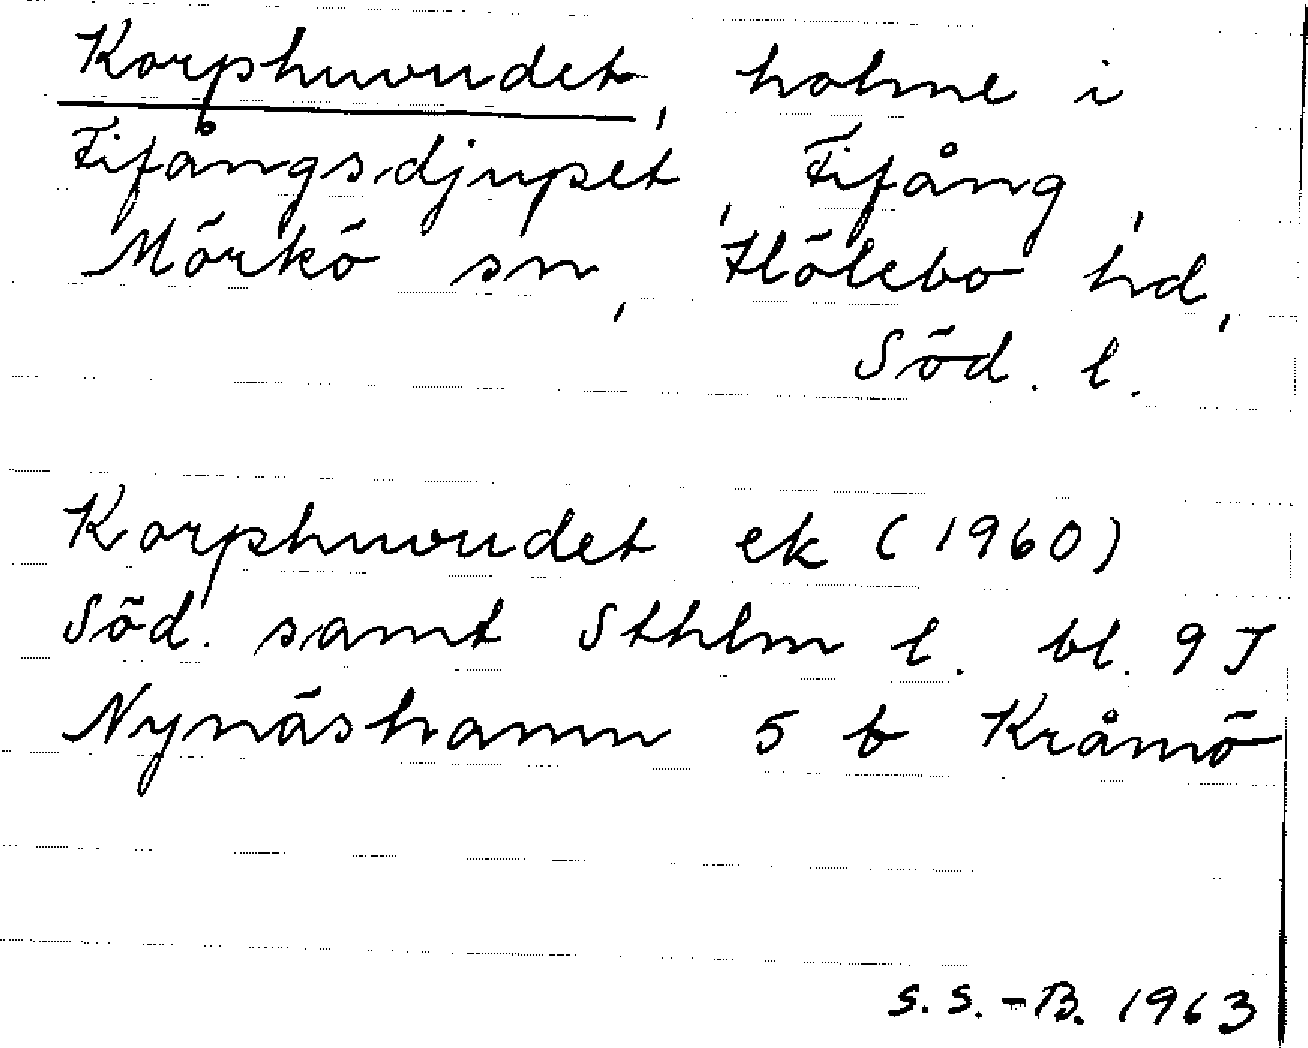 Korphuvudet, holme i
Fifångsdjupet, Fifång,
Mörkö sn, Hölebo hd,
Söd. l.
Korphuvudet ek (1960)
Söd. samt Sthlm l. bl. 9 I
Nynäshamn 5 b Kråmö
S. S. - B. 1963